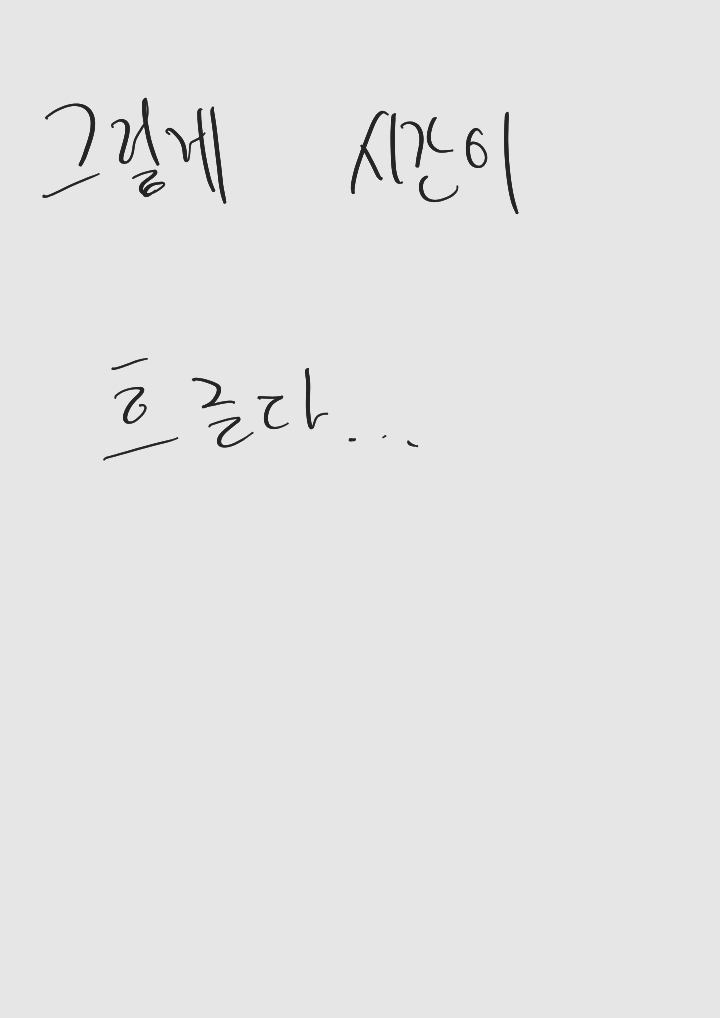 그렇게 시간이
흐른다...